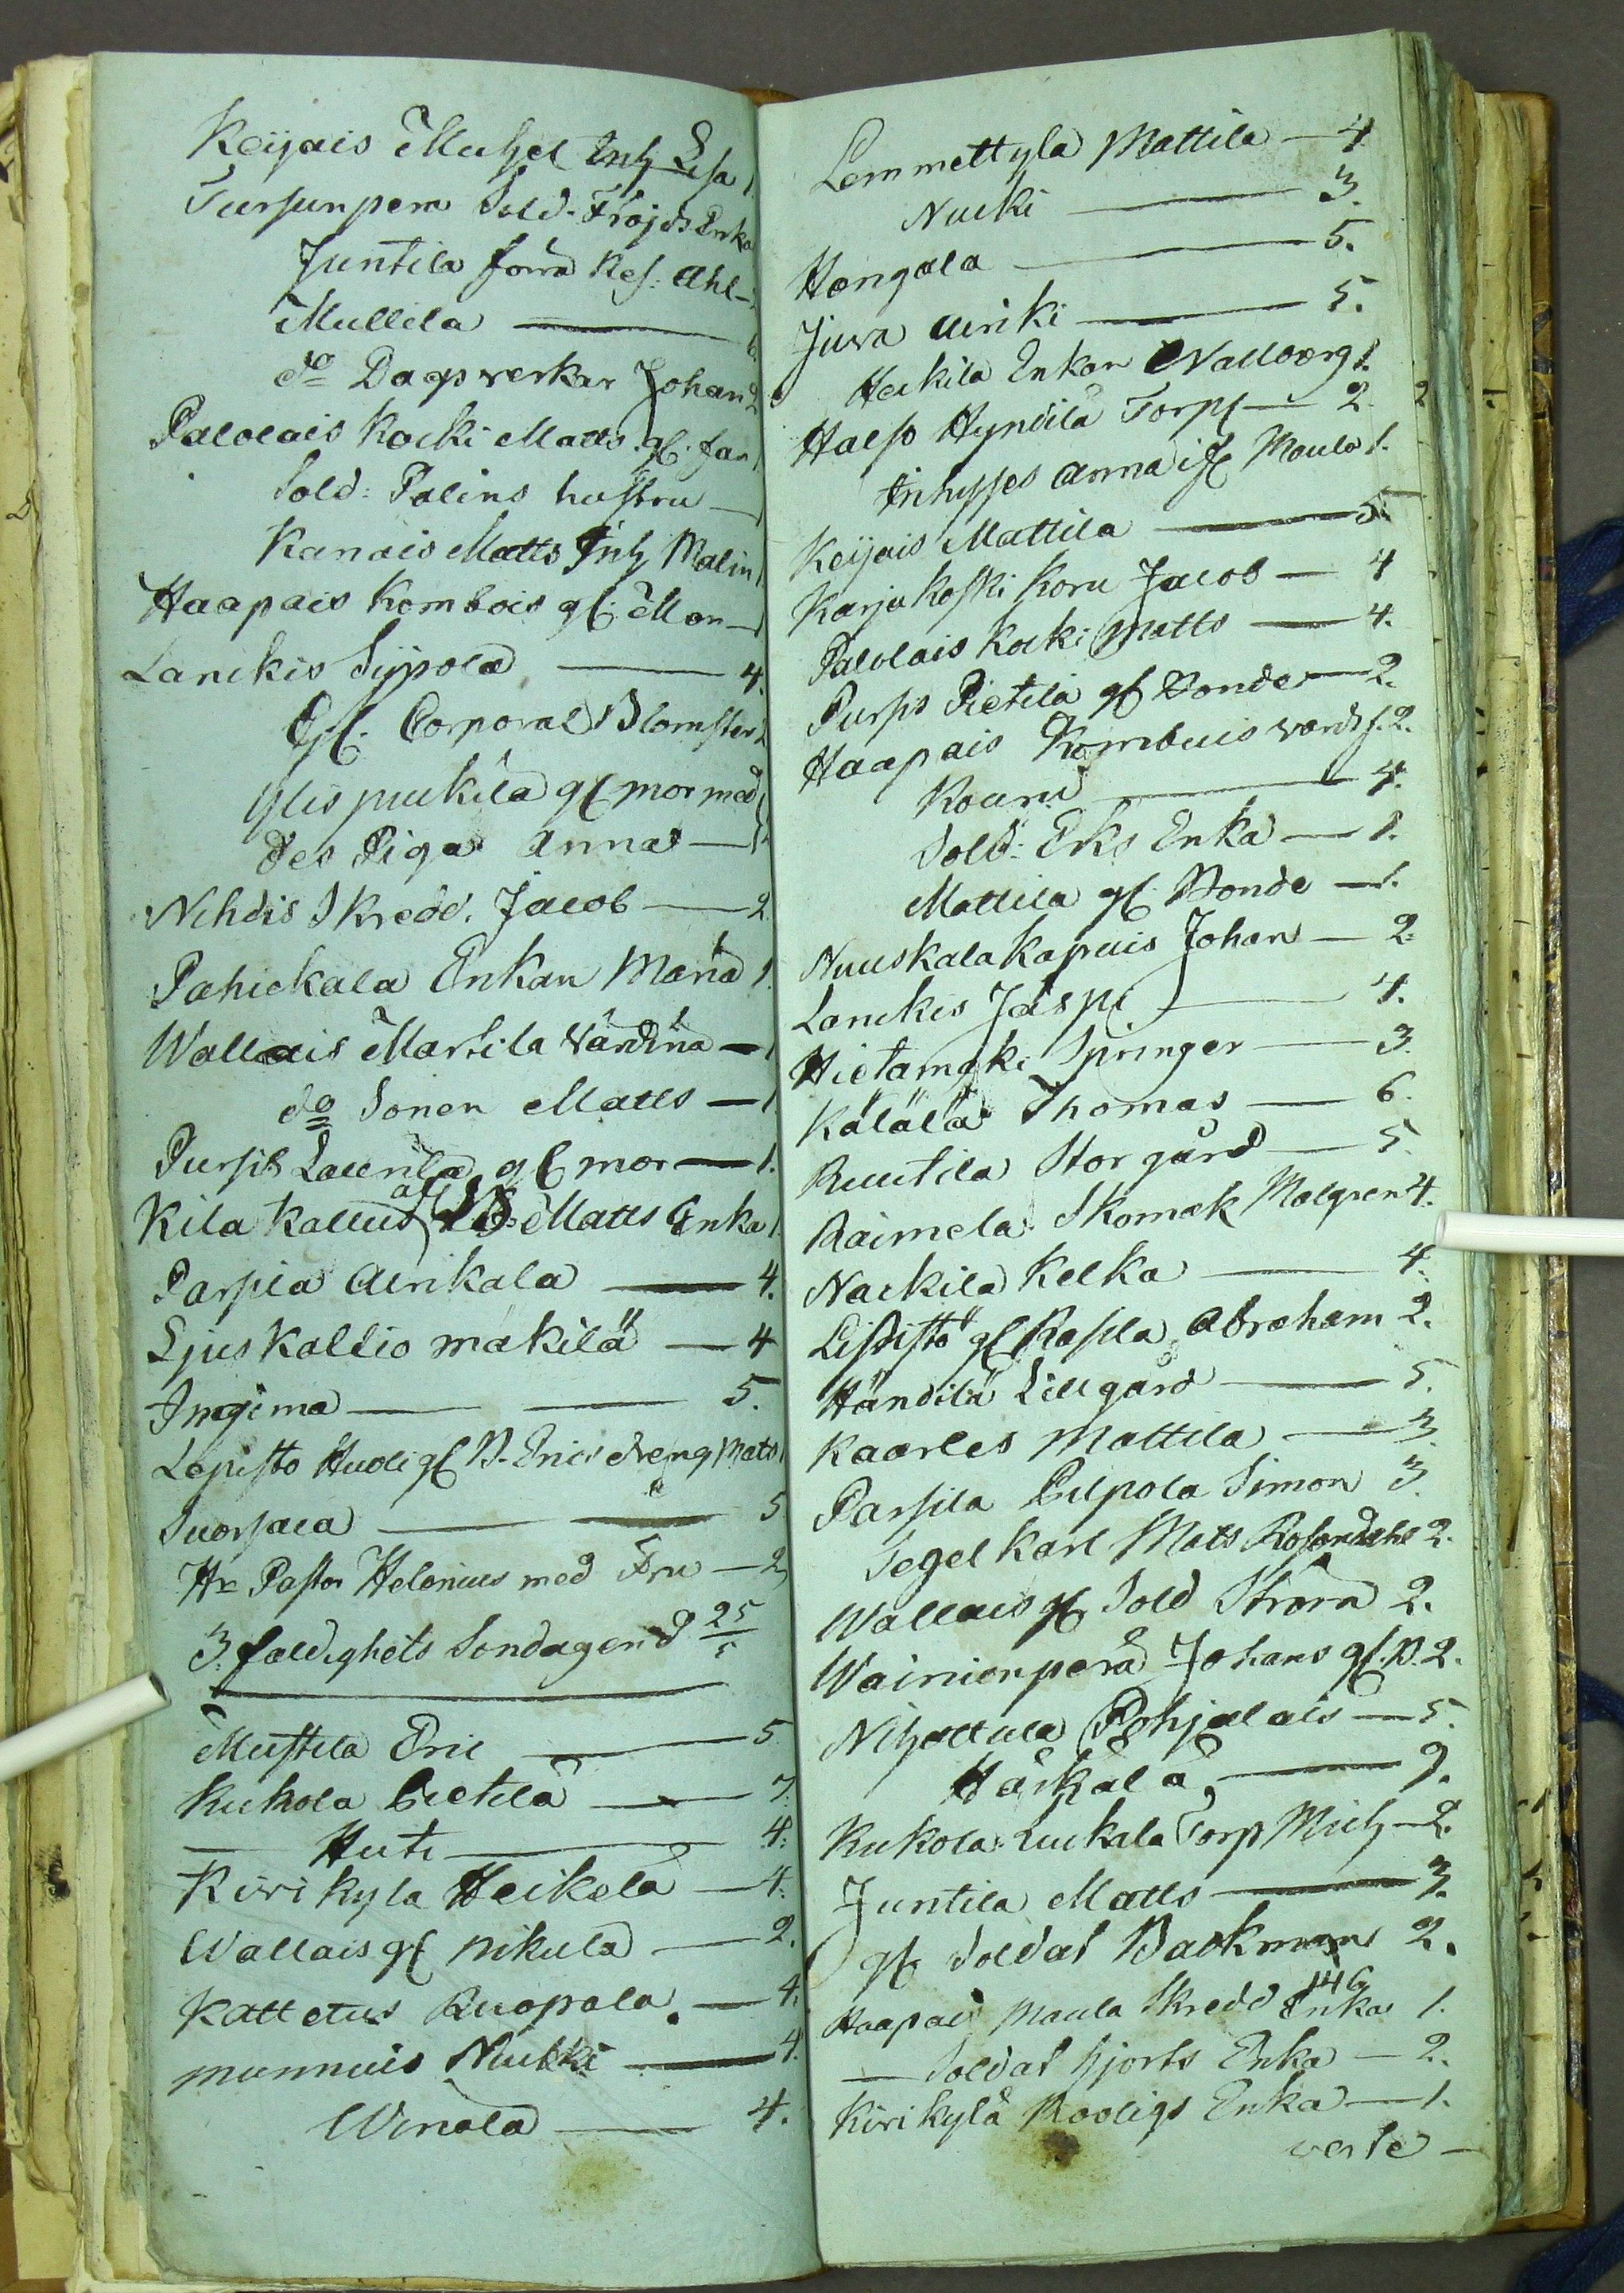 Keijais Michel Inh Lisa 1
Tursunpera Sold. Fröjds Enka
Juntila förra Ref: Ahl
Mullila — 6.
do Dagsverkar Johan 2
Palolais Kocki Matts. gl. far 1
Sold: Palins hustru — 1
Kanais Matts Inh Malin 1
Haapais Kombois gl. Mor — 1
Lanckis Sÿpola — 4.
gl. Corporal Blomster 2
Ylispuckila gl mor med
des Piga Anna — 1.
Nihdis Skredd. Jacob — 2
Pahickala Enkan Maria 1.
Wallais Martila Värdina — 1
do Sonen Matts — 1
Pursils Laurila gl mor — 1.
Kila Kallus afl B: Matts Enka 1
Parpia Aurikala — 4.
Ljuskallio mäkilä — 4
Ingima — 5.
Lepisto Huoli gl B. Erics dreng Mats 1
Suorsaca — 5
Hr Pastor Helenius med Fru — 2
3:faldighets Sondagen d 25/5
Mustila Eric — 5
Kuckola Pietilä — 7:
— Huti — 4:
Kirikyla Heikela — 4.
Wallais gl Nikula — 2.
Kattetus Ruopala — 4.
munnuis Nuckki — 4.
Winala — 4.
Lemmettyla Mattila — 4
Nucki — 3.
Hongala — 5.
Juva Aurki — 5.
Heikila Enkan Wallberg 1.
Halso Hyndilä Torp — 2. 2
Inhysses Anna i gl Maula 1.
Keijais Mattila — 5.
Karjakoski Koru Jacob — 4
Palolais Kocki Matts — 4.
Purss Pietila gl Bonde — 2.
Haapais Kombuis värdsf. 2.
Kouri — 4.
Sold: Eks Enka — 1.
Mattila gl. Bonde — 1.
Nuuskala Kapuis Johan — 2:
Lanckis Jaspi — 4.
Hietamäki Springer — 3.
Kälälä Thomas — 6.
Ruutila Storgård — 5.
Raimela Skomak Malgren 4.
Nackila Kelka — 4.
Lisistö gl Rasila Abraham 2.
Händilä Lillgård — 5.
Kaarles Mattila — 3.
Parsila Pilpola Simon 3.
Segel Karl Mats Rosendahl 2.
Wallais gl Sold Ström 2.
Wainionperä Johans gl. B. 2.
Nihattula Pohjalais — 5.
Häikälä — 9.
Kukola Luckala Torp Mich — 2.
Juntila Matts — 3.
gl. Soldat Backman 2.
146
Haapais Maula Skredd Enka 1.
— Soldat Hjorts Enka — 2.
Kirikylä Rodigs Enka — 1.
verte —